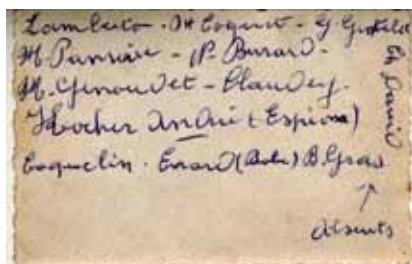 Lamberto - H Coquet - G
H. Pansier - P. Burard -
H. Genoudet - Claudey.
Hocher André (Espion)
Coquelin. Evrard (Bobo) B. Gras
Ch David
↑
Absents